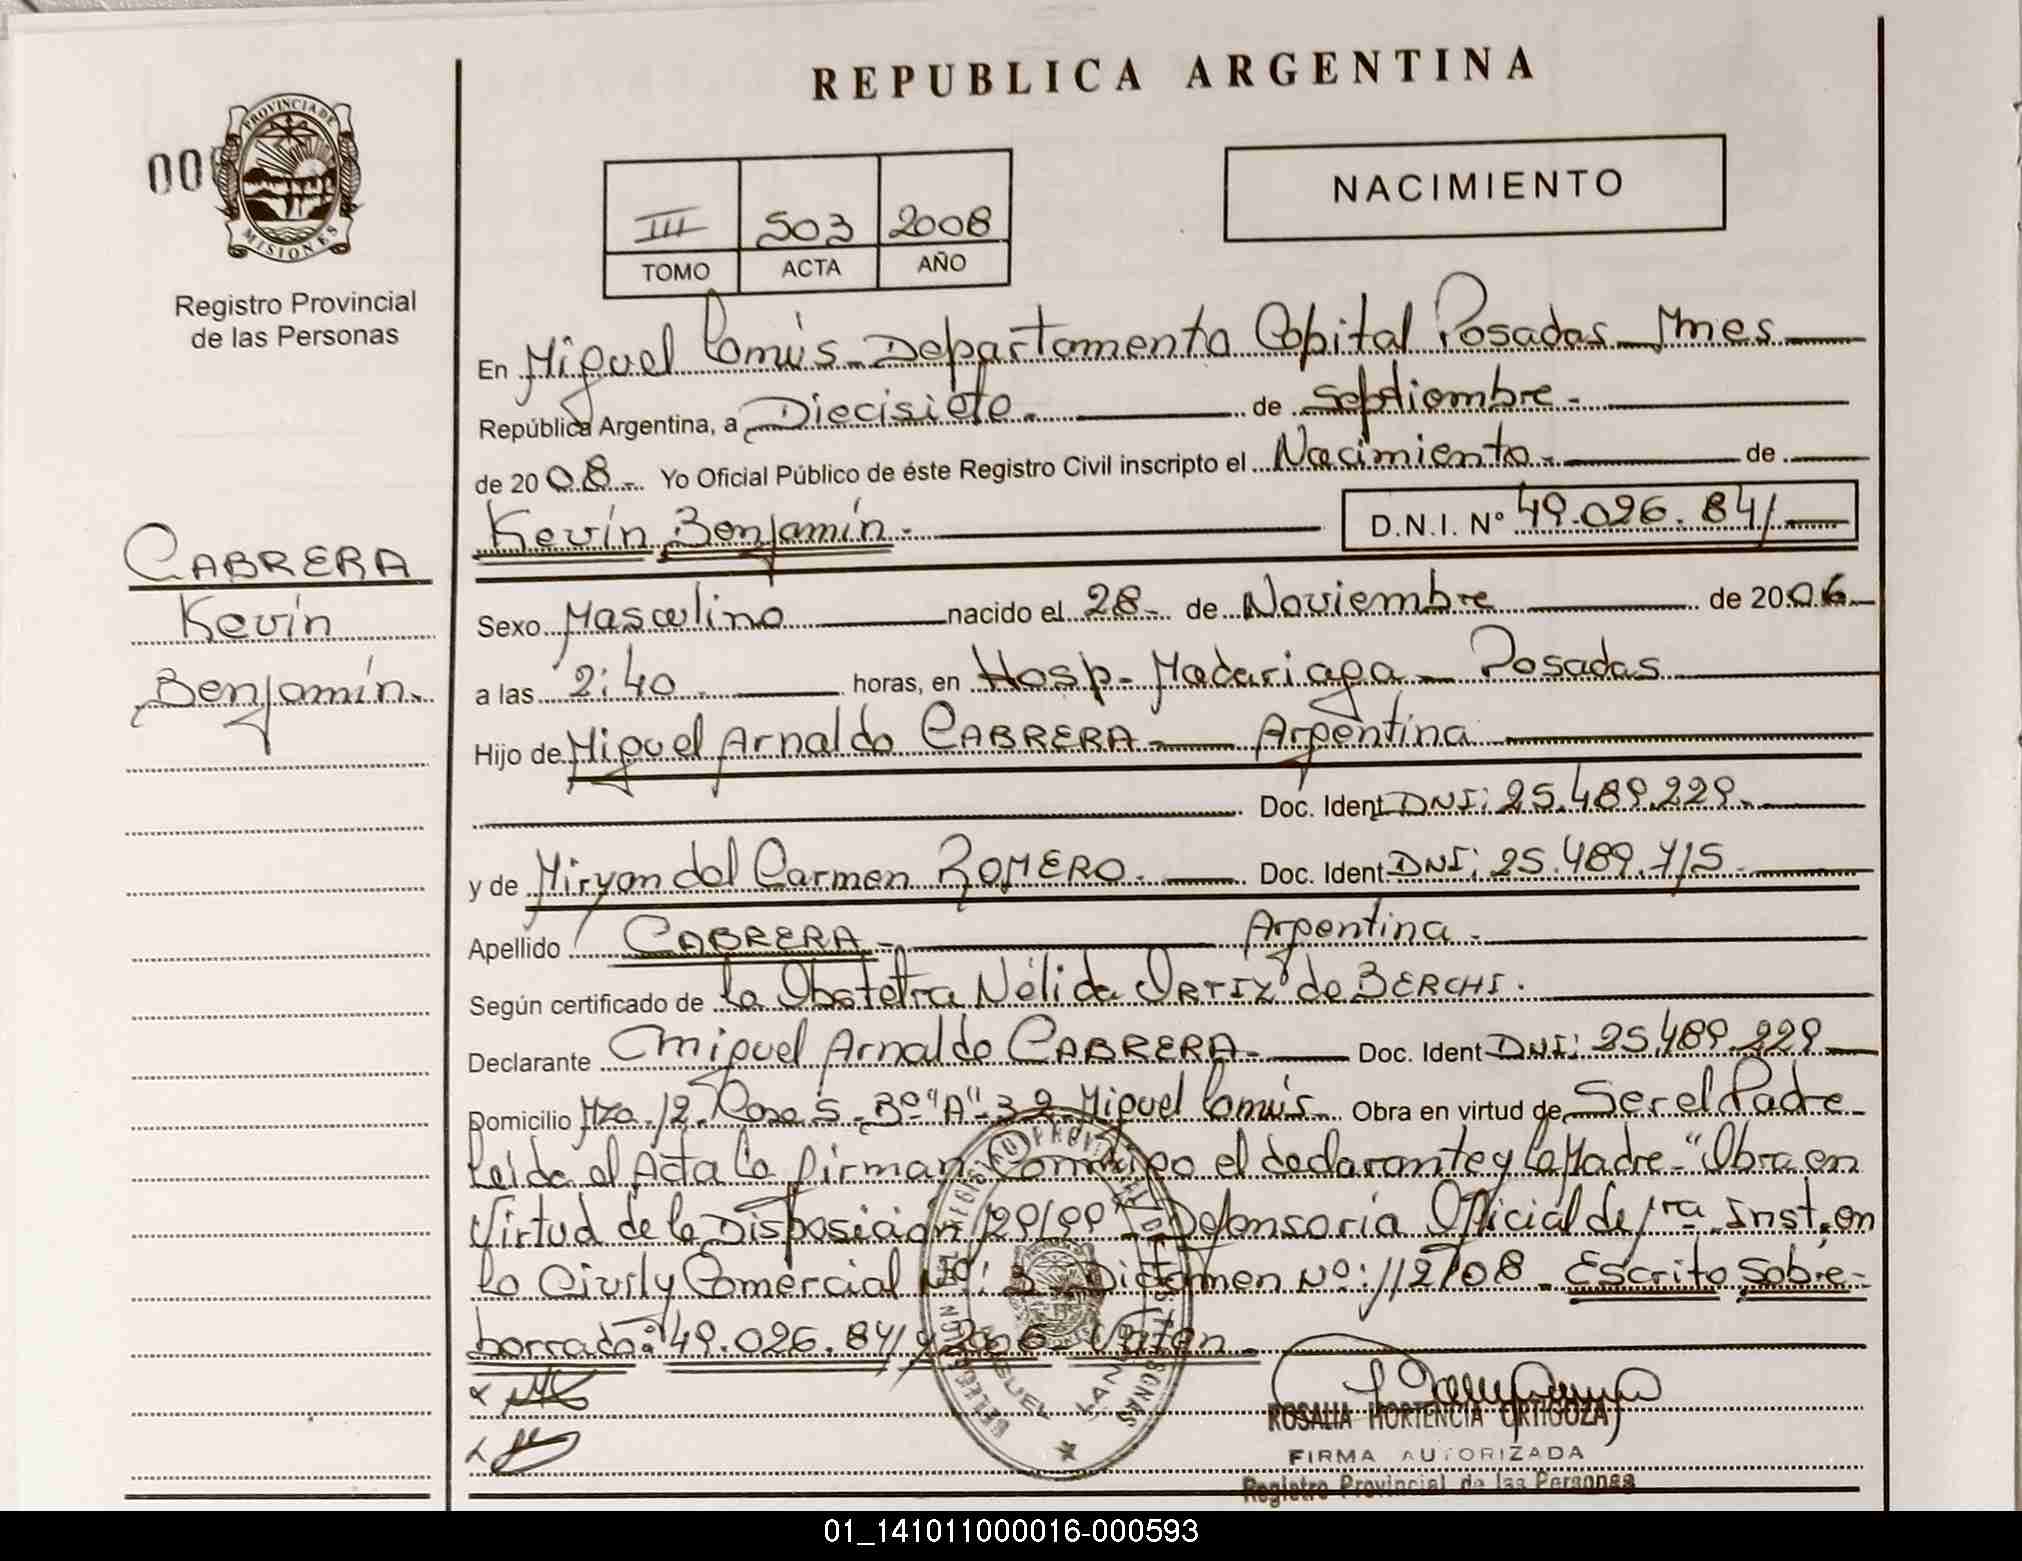 REPUBLICA ARGENTINA
PROVINCIA DE
MISIONES
00
Registro Provincial
de las Personas
NACIMIENTO
III 503 2008
TOMO ACTA AÑO
En Miguel Lanús - Departamento Capital Posadas Mnes
República Argentina, a Diecisiete de Septiembre
de 2008 Yo Oficial Público de éste Registro Civil inscripto el Nacimiento de
Kevin Benjamín D.N.I. Nº 49.026.841
CABRERA
Kevin
Benjamín
Sexo Masculino nacido el 28 de Noviembre de 2006
a las 2:40 horas, en Hosp. Madariaga - Posadas
Hijo de Miguel Arnaldo CABRERA Argentina
Doc. Ident DNI: 25.489.229
y de Miryan del Carmen ROMERO. Doc. Ident DNI: 25.489.715
Apellido CABRERA Argentina
Según certificado de la Obstetra Nélida ORTIZ de BERCHI.
Declarante Miguel Arnaldo CABRERA Doc. Ident DNI: 25.489.229
Domicilio Mza. 12 Casa 5 Bº "A" 3 2 Miguel Lanús Obra en virtud de Ser el Padre
Leída el Acta la firman conmigo el declarante y la Madre - "Obra en
Virtud de la Disposición 129/99 Defensoría Oficial de 1ra Inst. en
lo Civil y Comercial Nº: 3 Dictamen Nº: 112/08 - Escrito sobre
borrado: 49.026.841 y 2006 - Valen
ROSALIA HORTENCIA ORTIGOZA
FIRMA AUTORIZADA
Registro Provincial de las Personas
01_141011000016-000593